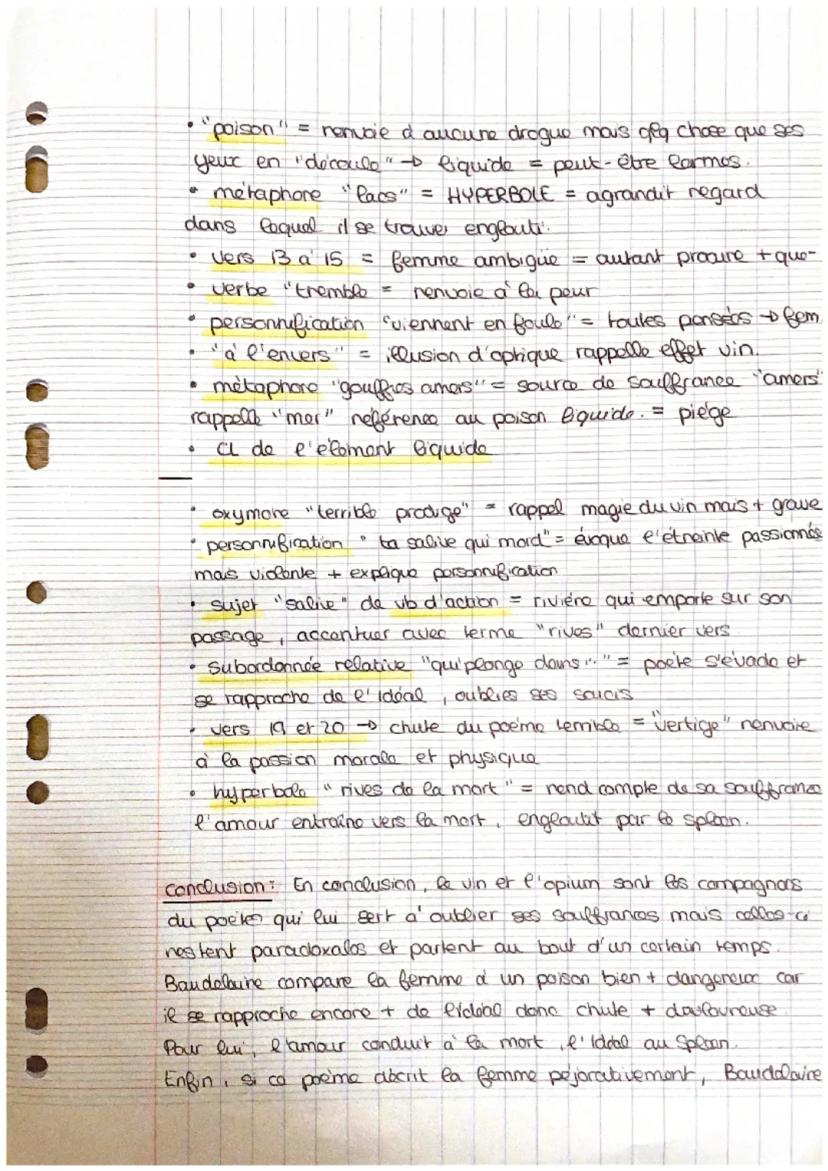 • "poison" = renvoie à aucune drogue mais qlq chose que ses
yeux en "découle" → liquide = peut-être larmes.
• métaphore "lacs" = HYPERBOLE = agrandit regard
dans lequel il se trouve englouti.
• vers 13 à 15 = femme ambigüe = autant procure + que-
• verbe "tremble = renvoie à la peur
• personnification "viennent en foule" = toutes pensées → fem
• "à l'envers" = illusion d'optique rappelle effet vin.
• métaphore "gouffres amers" = source de souffrance "amers"
rappelle "mer" référence au poison liquide. = piège
• CL de l'élément liquide
• oxymore "terrible prodige" = rappel magie du vin mais + grave
• personnification "ta salive qui mord" = évoque l'étreinte passionnée
mais violente + explique personnification
• sujet "salive" de vb d'action = rivière qui emporte sur son
passage, accentuer avec terme "rives" dernier vers
• subordonnée relative "qui plonge dans..." = poète s'évade et
se rapproche de l'Idéal, oublies ses soucis
• vers 19 et 20 → chute du poème terrible = "vertige" renvoie
à la passion morale et physique
• hyperbole "rives de la mort" = rend compte de sa souffrance
l'amour entraîne vers la mort, engloutit par le spleen.
conclusion: En conclusion, le vin et l'opium sont les compagnons
du poète qui lui sert à oublier ses souffrances mais celles-ci
restent paradoxales et partent au bout d'un certain temps.
Baudelaire compare la femme à un poison bien + dangereux car
il se rapproche encore + de l'idéal donc chute + douloureuse.
Pour lui, l'amour conduit à la mort, l'Idéal au Spleen.
Enfin, si ce poème décrit la femme péjorativement, Baudelaire